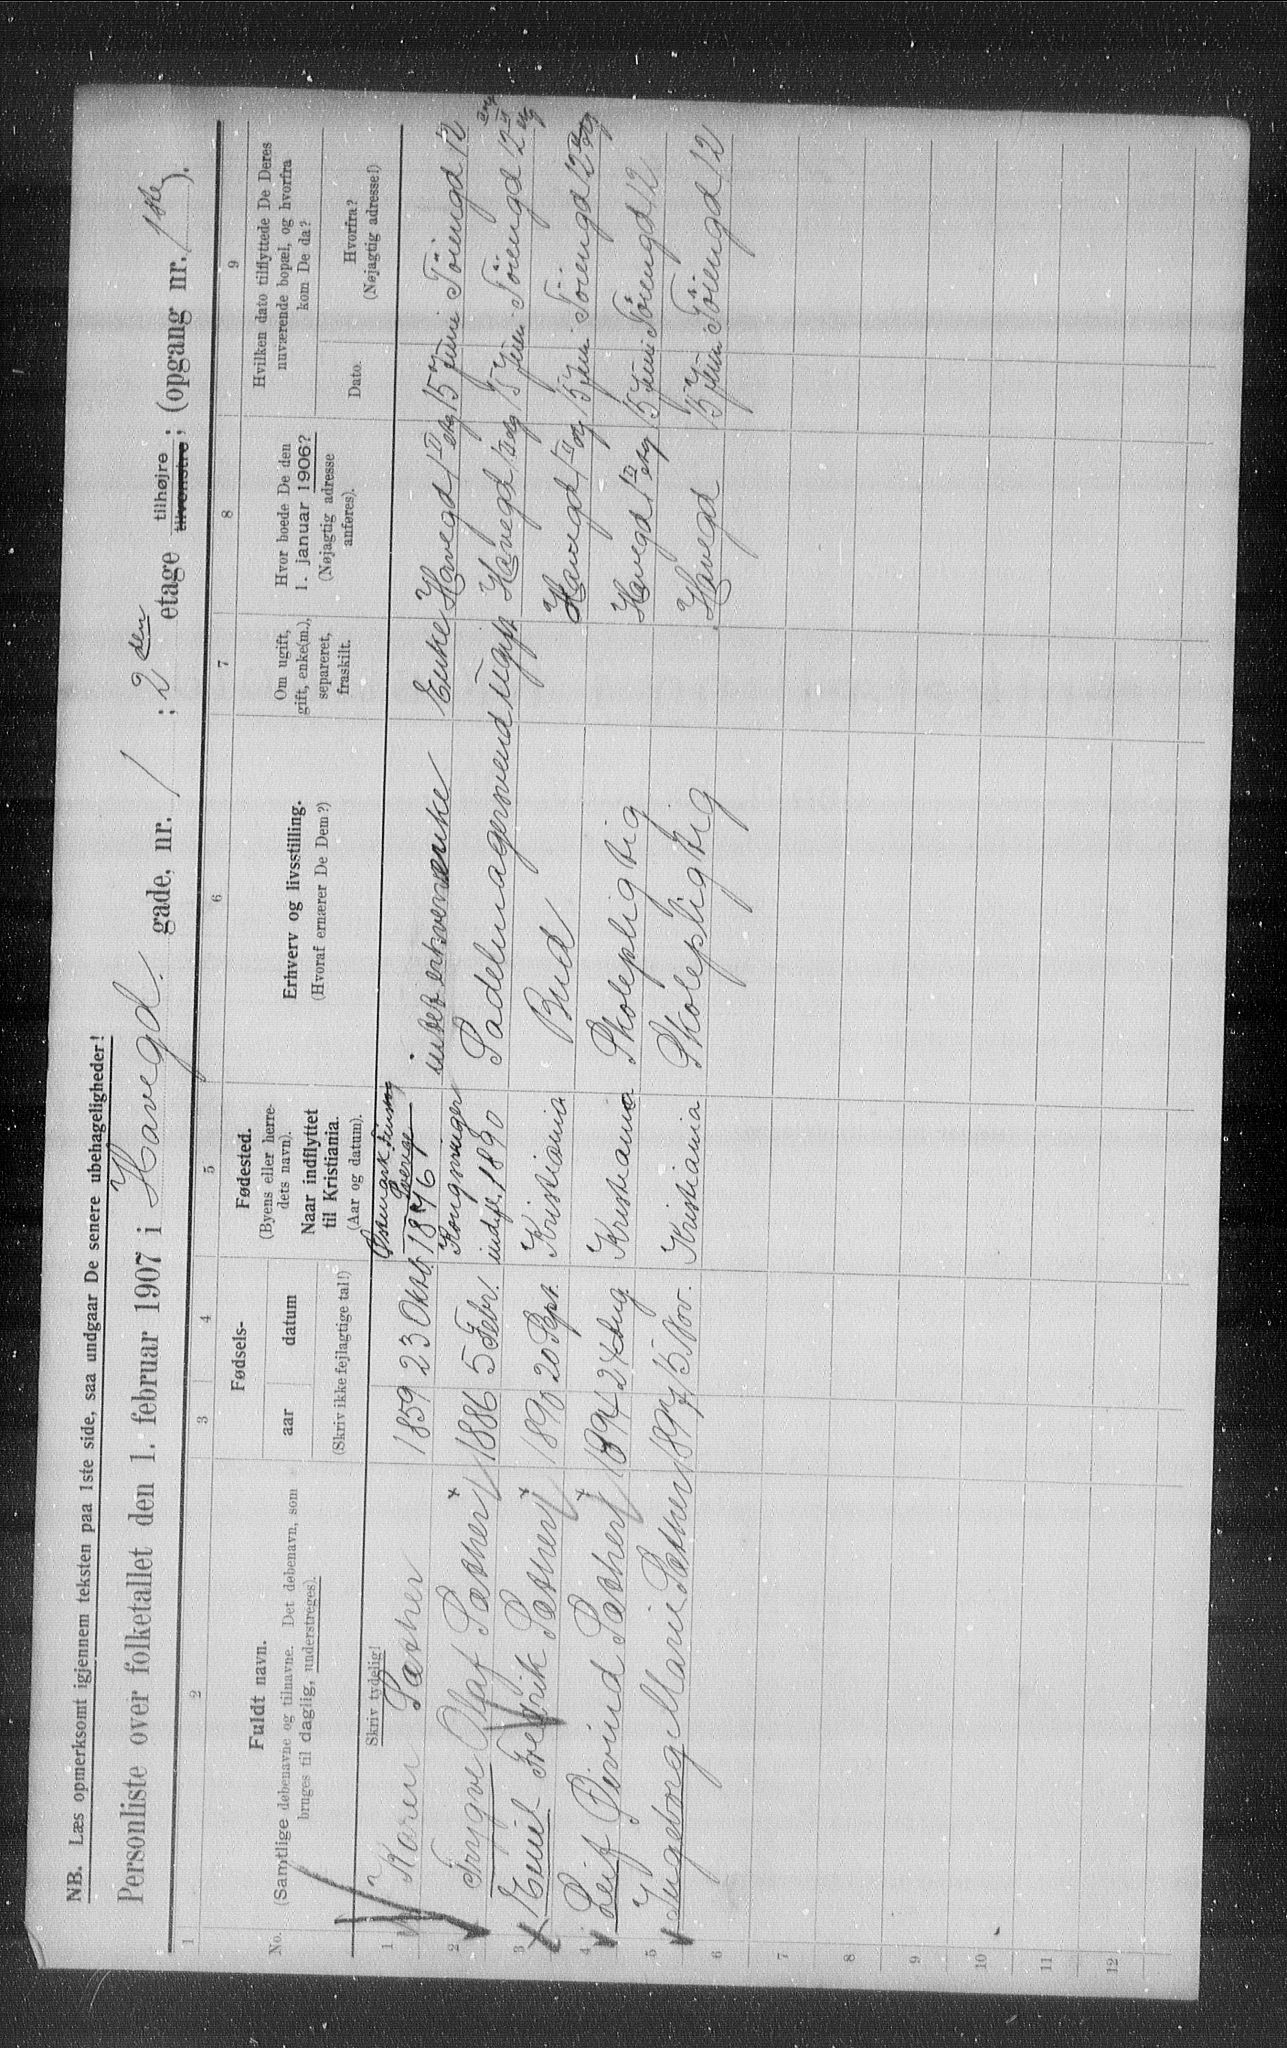 NB. Læs opmerksomt igjennem teksten paa 1ste side, saa undgaar De senere ubehageligheder!
Personliste over folketallet den 1. februar 1907 i Havegd. gade, nr. 1 ; 2den etage tilhøjre tilvenstre ; (opgang nr. 1ste ).
1 2 3 4 5 6 7 8 9
No.
Fuldt navn.
(Samtlige døbenavne og tilnavne. Det døbenavn, som
bruges til daglig, understreges).
Skriv tydelig!
Fødsels-
aar datum
(Skriv ikke fejlagtige tal!)
Fødested.
(Byens eller herre-
dets navn).
Naar indflyttet
til Kristiania.
(Aar og datum).
Erhverv og livsstilling.
(Hvoraf ernærer De Dem?)
Om ugift,
gift, enke(m.),
separeret,
fraskilt.
Hvor boede De den
1. januar 1906?
(Nøjagtig adresse
anføres).
Hvilken dato tilflyttede De Deres
nuværende bopæl, og hvorfra
kom De da?
Dato.
Hvorfra?
(Nøjagtig adresse!)
1 Karen Sæther 1859 23 Oktb. Sverige 1876 enke Enke Havegd 1 II etg 15 Juni Töiengd 12
2 Trygve Olaf Sæther 1886 5 Febr. Kongsvinger indfl. 1890 Sadelmagersvend ugift Havegd 15 Juni Töiengd 12
3 Emil Fredrik Sæther 1890 20 Sept. Kristiania Bud Havegd 1 15 Juni Töiengd 12
4 Leif Øivind Sæther 1894 24 Aug Kristiania Skolepligtig Havegd 1 II etg 15 Juni Töiengd 12
5 Ingeborg Marie Sæther 1897 15 Nov. Kristiania Skolepligtig Havegd 15 Juni Töiengd 12
6
7
8
9
10
11
12